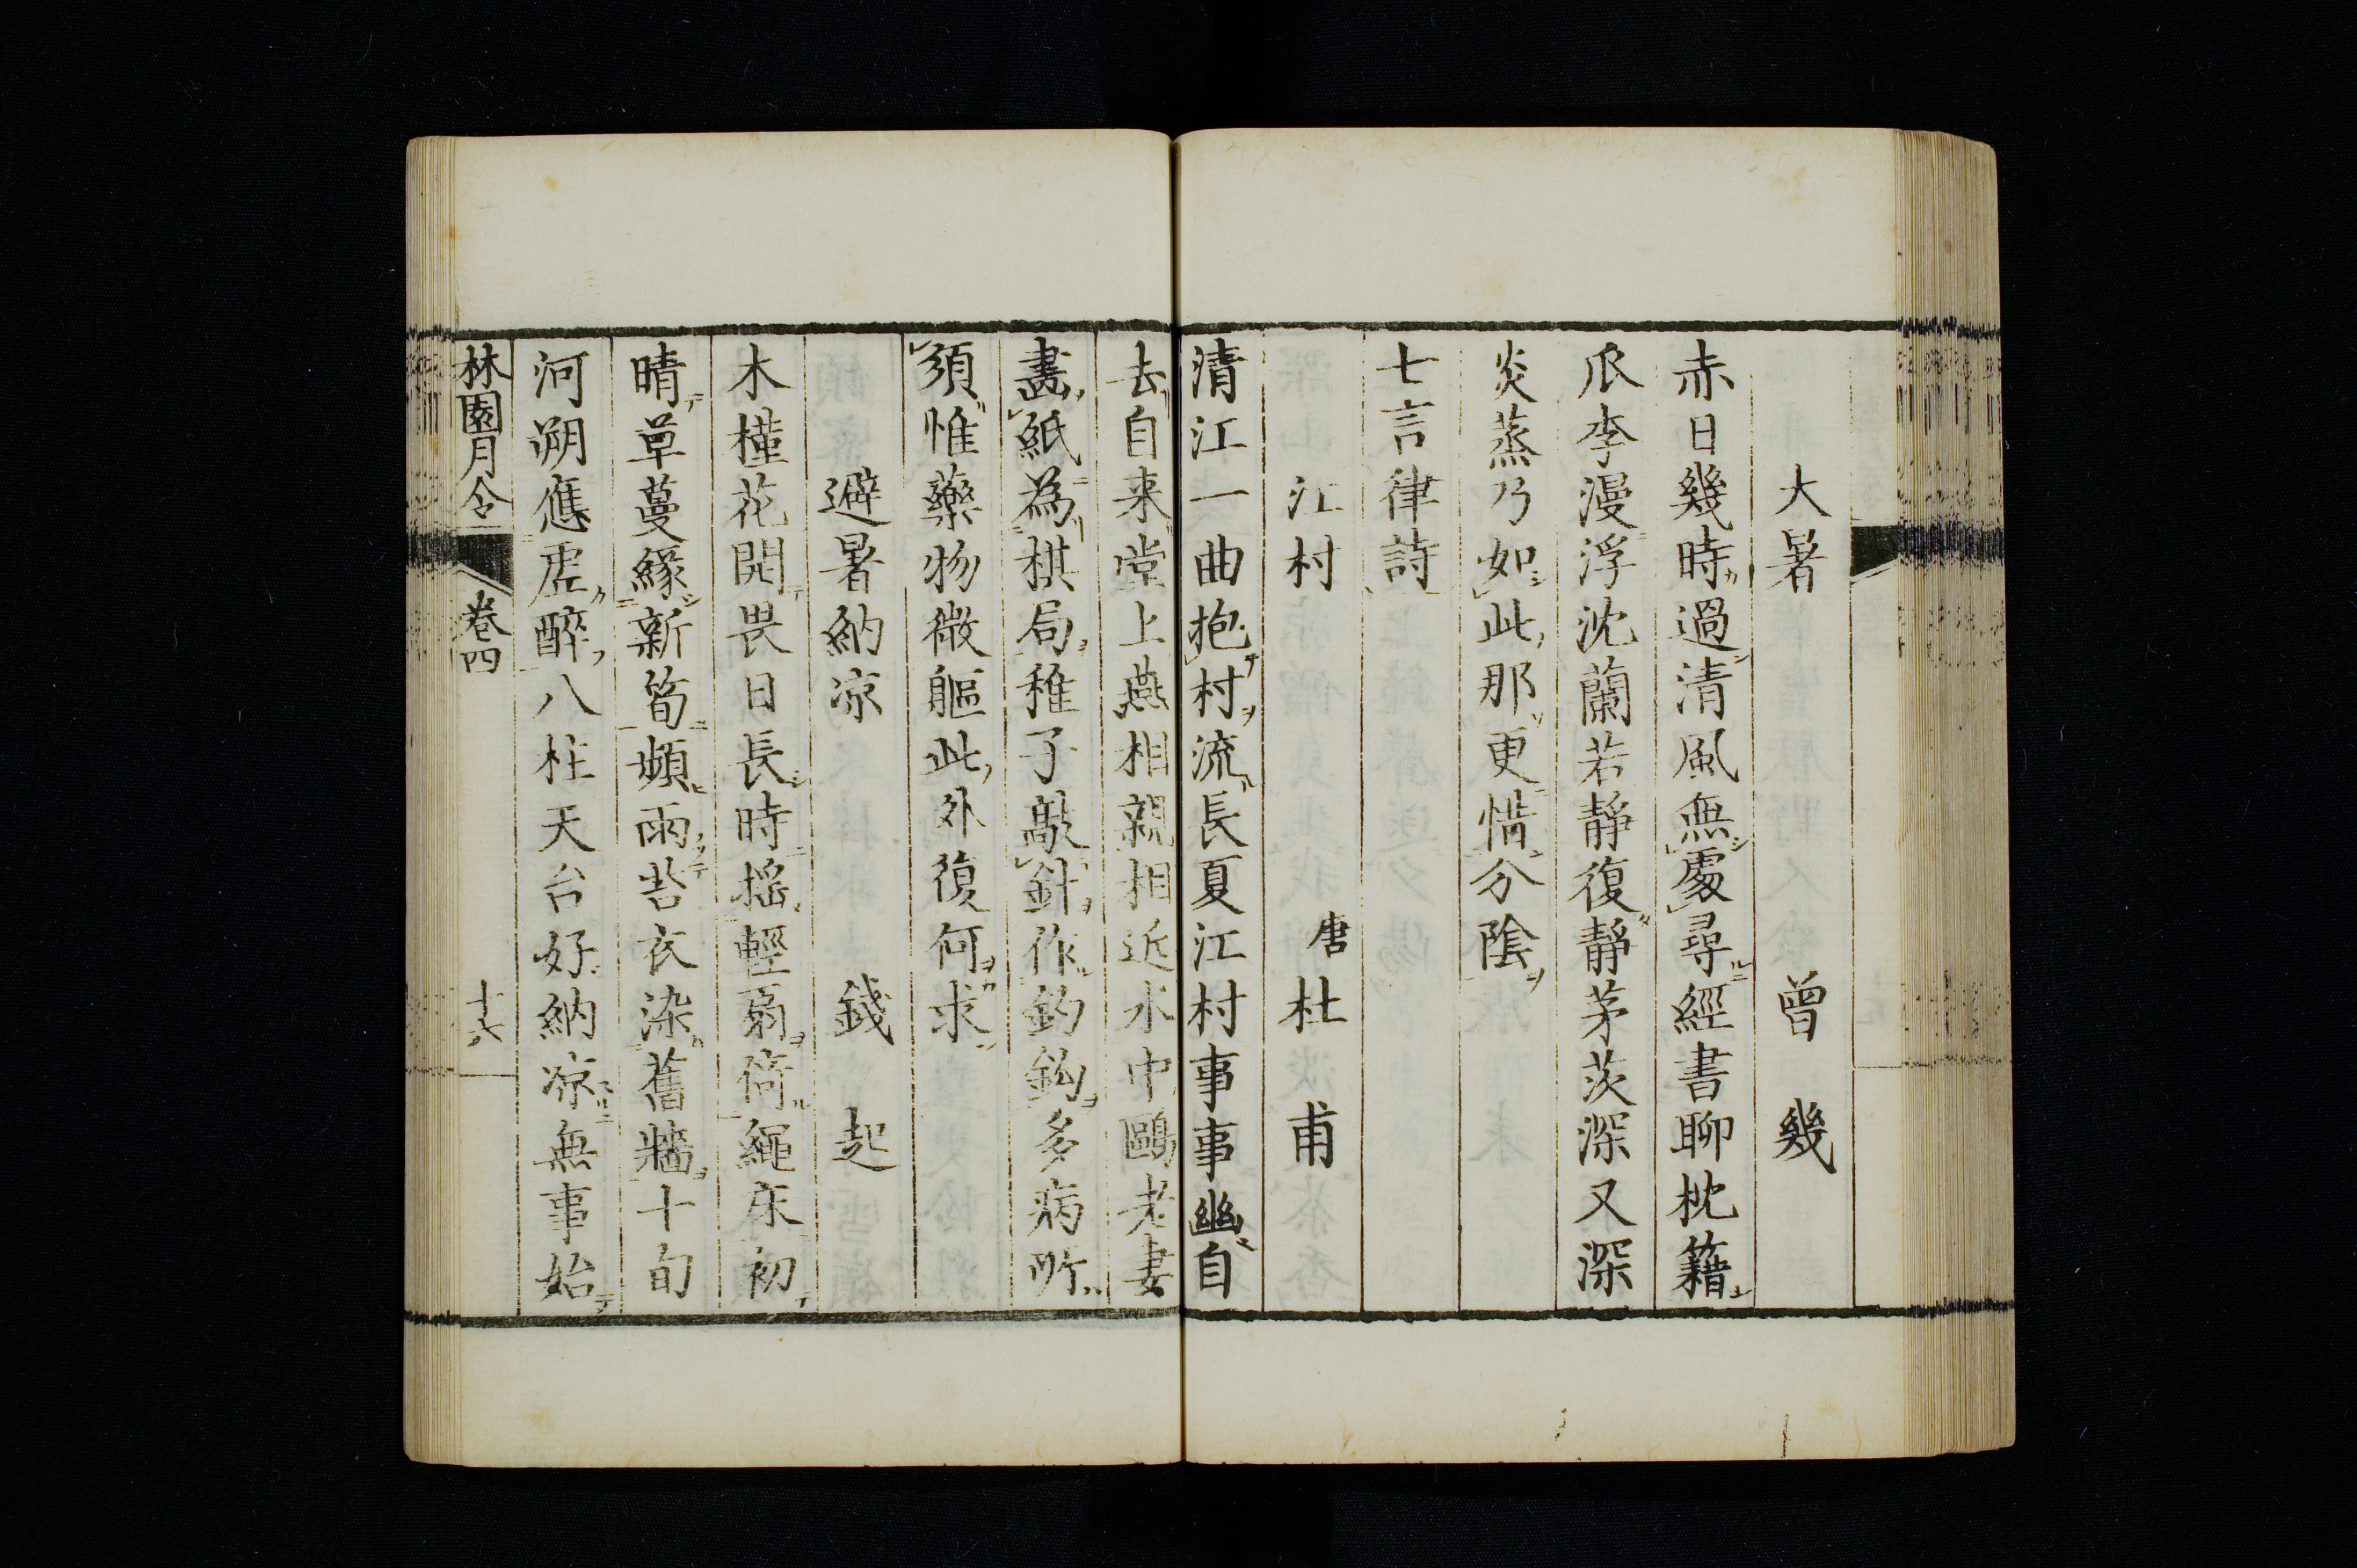 大暑　曾幾
赤日幾時過清風無處尋經書聊枕籍
瓜李漫浮沈蘭若靜復靜茅茨深又深
炎蒸乃如此那更惜分陰
七言律詩
江村　唐杜甫
清江一曲抱村流長夏江村事事幽自
去自来堂上燕相親相近水中鷗老妻
畫紙為棋局稚子敲針作釣鈎多病所
須惟藥物微軀此外復何求
避暑納凉　錢起
木槿花開畏日長時搖輕扇倚繩床初
晴草蔓緣新筍頻雨苔衣染舊牆十旬
河朔應虛醉八柱天台好納凉無事始
林園月令　卷四　十六